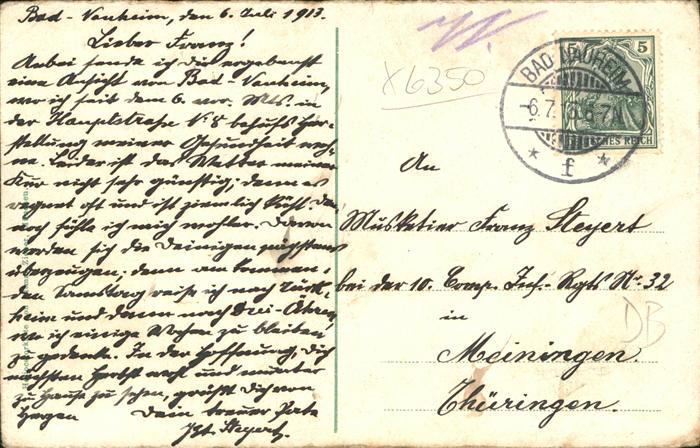 Bad-Nauheim, den 6. Juli 1913.
Lieber Franz!
Anbei sende ich dir ergebenst
eine Ansicht von Bad-Nauheim,
wo ich seit dem 6. vor. Mts. in
der Hauptstrasse No 8 behufs Her-
stellung meiner Gesundheit woh-
ne. Leider ist das Wetter meiner
Kur nicht sehr günstig; denn es
regnet oft und ist ziemlich kühl. Den-
noch fühle ich mich wohler. Davon
werden sich die Deinigen nächstens
überzeugen; denn am kommen-
den Samstag reise ich nach Türk-
heim und dann nach Drei-Ähren,
wo ich einige Wochen zu bleiben
gedenke. In der Hoffnung, dich
nächsten Herbst wohl und munter
zu Hause zu sehen, grüßt dich von
Herzen Dein treuer Pate
Steyert.
X6350
BAD-NAUHEIM
-6.7.13. 6-7
* f *
5
DEUTSCHES REICH
An
Musketier Franz Steyert
bei der 10. Comp. Inf. Rgts Nr. 32
in
Meiningen.
Thüringen.
DB